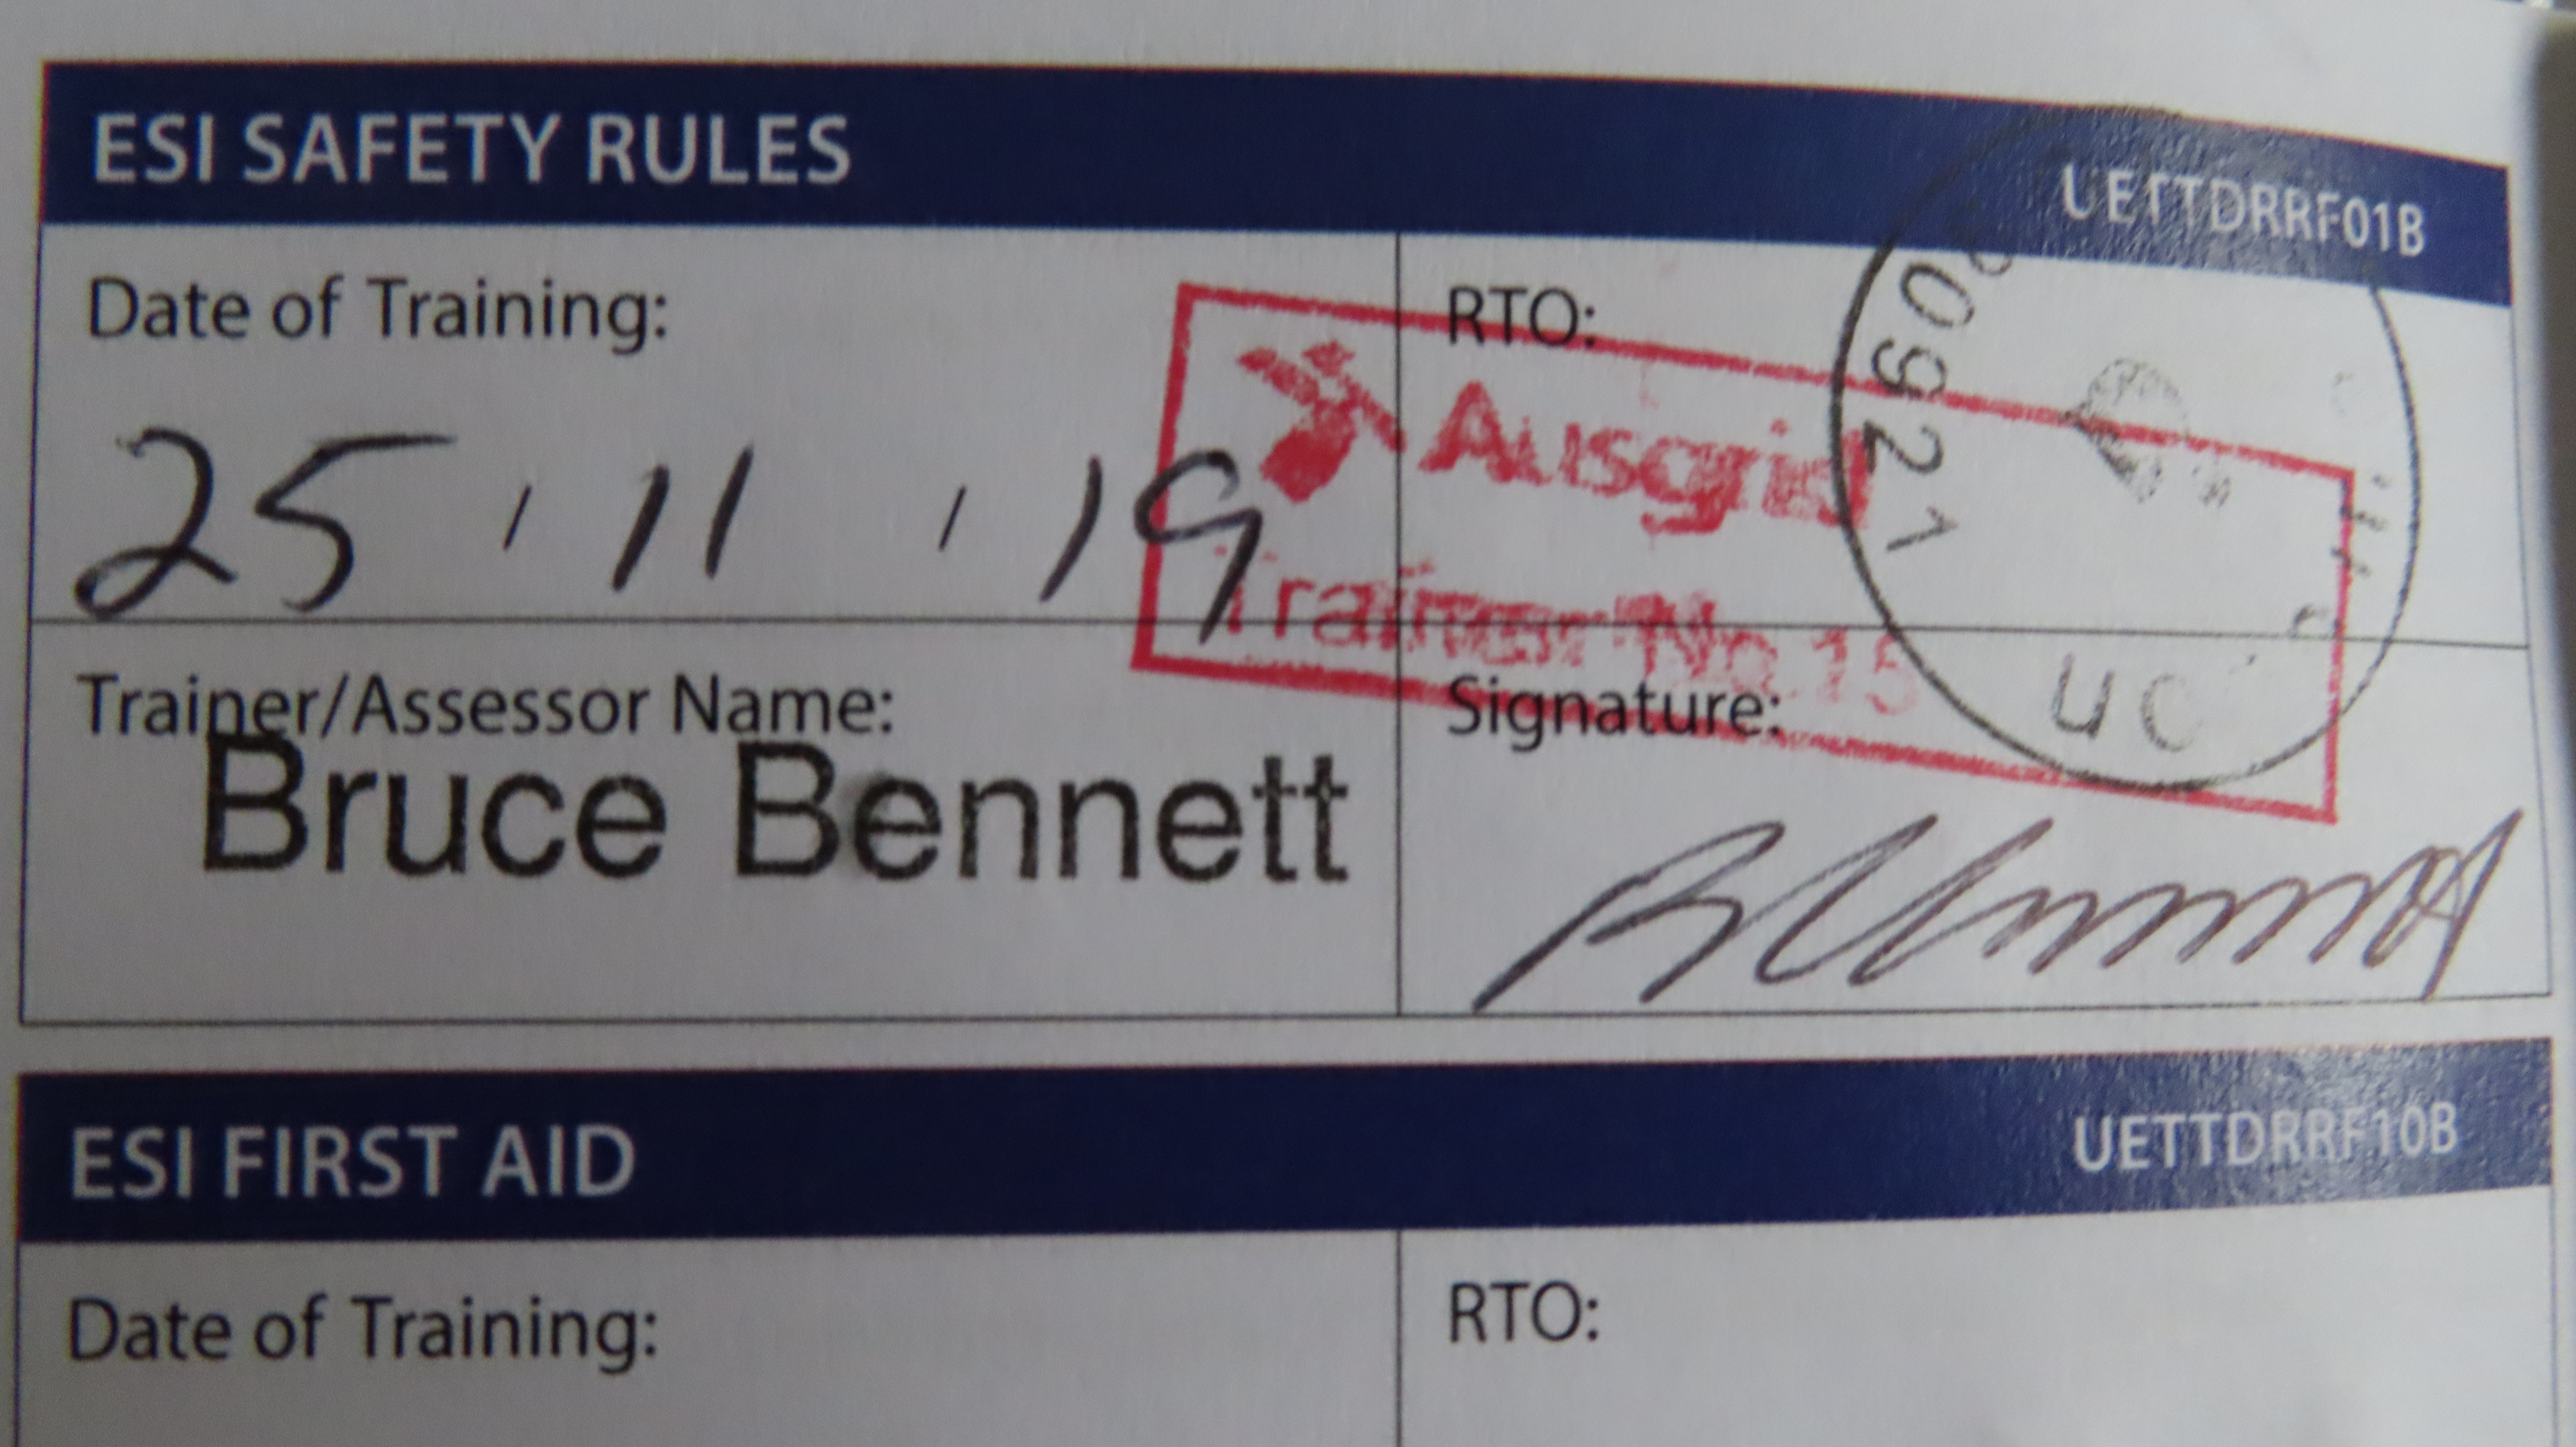 ESI SAFETY RULES UETTDRRF01B
Date of Training: RTO:
25 / 11 / 19
Ausgrid
Trainer No. 15
Trainer/Assessor Name: Signature:
Bruce Bennett
ESI FIRST AID UETTDRRF10B
Date of Training: RTO: